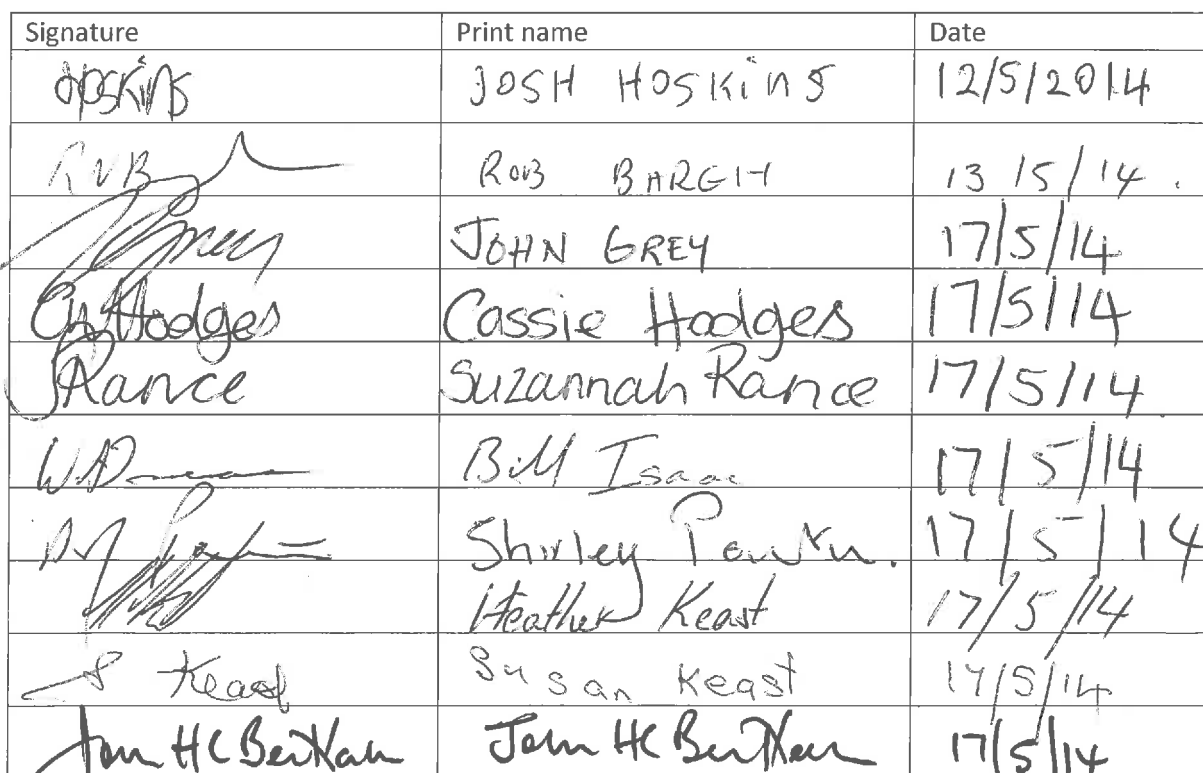 Signature Print name Date
Hoskins JOSH HOSKiNS 12/5/2014
ROB BARGH 13/5/14.
JGrey JOHN GREY 17/5/14
Hodges Cassie Hodges 17/5/14
SRance Suzannah Rance 17/5/14
Bill Isaac 17/5/14
Shirley 17/5/14
Heather Keast 17/5/14
S Keast Susan Keast 17/5/14
HC John HC 17/5/14